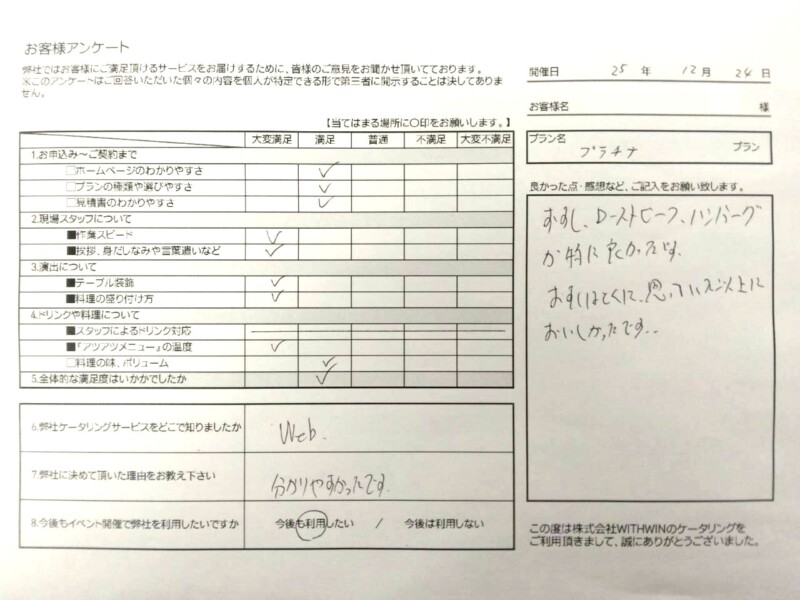 お客様アンケート
弊社ではお客様にご満足頂けるサービスをお届けするために、皆様のご意見をお聞かせ頂いてております。
※このアンケートはご回答いただいた個々の内容を個人が特定できる形で第三者に開示することは決してありません。
【当てはまる場所に○印をお願いします。】
大変満足 満足 普通 不満足 大変不満足
1.お申込み～ご契約まで
□ホームページのわかりやすさ ✓
□プランの種類や選びやすさ ✓
□見積書のわかりやすさ ✓
2.現場スタッフについて
■作業スピード ✓
■挨拶、身だしなみや言葉遣いなど ✓
3.演出について
■テーブル装飾 ✓
■料理の盛り付け方 ✓
4.ドリンクや料理について
■スタッフによるドリンク対応
■『アツアツメニュー』の温度 ✓
□料理の味、ボリューム ✓
5.全体的な満足度はいかがでしたか ✓
6.弊社ケータリングサービスをどこで知りましたか Web.
7.弊社に決めて頂いた理由をお教え下さい 分かりやすかったです.
8.今後もイベント開催で弊社を利用したいですか 今後も利用したい / 今後は利用しない
開催日 25 年 12 月 24 日
お客様名 様
プラン名 プラチナ プラン
良かった点・感想など、ご記入をお願い致します。
おすし、ローストビーフ、ハンバーグ
が特に良かったです.
おすしはとくに、思っていた以上に
おいしかったです..
この度は株式会社WITHWINのケータリングを
ご利用頂きまして、誠にありがとうございました。